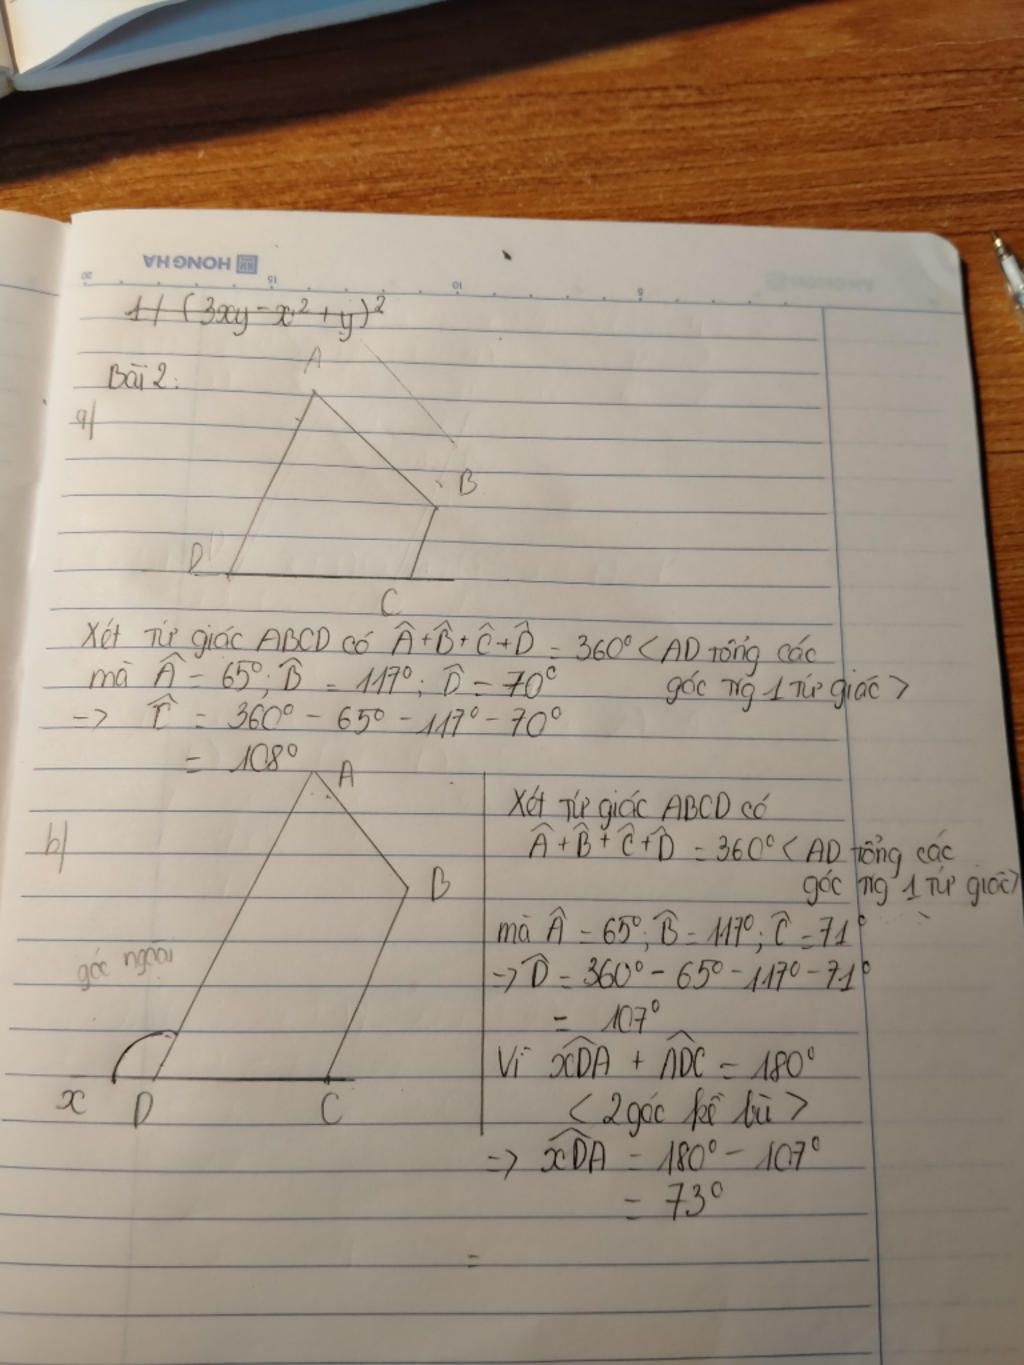 HONG HA
20 15 10 5
1/ (3xy - x² + y)²
Bài 2:
a/
A
B
D
C
Xét Tứ giác ABCD có Â + B̂ + Ĉ + D̂ = 360° < AD tổng các
góc trg 1 Tứ giác >
mà Â = 65°; B̂ = 117°; D̂ = 70°
=> Ĉ = 360° - 65° - 117° - 70°
= 108°
b/
A
B
góc ngoài
x D C
Xét Tứ giác ABCD có
Â + B̂ + Ĉ + D̂ = 360° < AD tổng các
góc trg 1 Tứ giác >
mà Â = 65°; B̂ = 117°; Ĉ = 71°
=> D̂ = 360° - 65° - 117° - 71°
= 107°
Vì x̂DA + ÂDC = 180°
< 2 góc kề bù >
=> x̂DA = 180° - 107°
= 73°
=